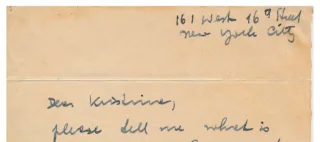 161 West 16th Street
New York City
Dear Kristina,
please tell me what is